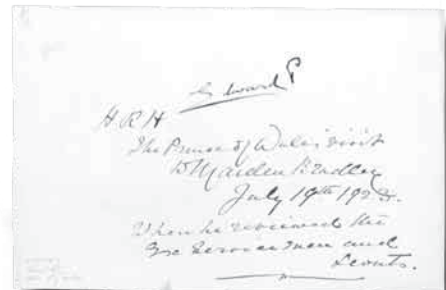 Edward P
H R H
The Prince of Wales' visit
to Maiden Bradley
July 19th 192
When he reviewed the
Ex Service men and
Scouts.